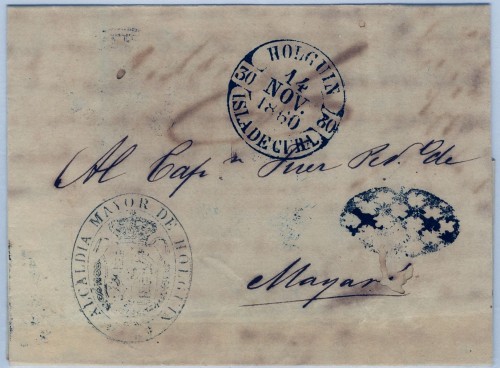 HOLGUIN
30 14 30
NOV.
1860
ISLA DE CUBA.
Al Cap.n Juez Ped.o de
ALCALDIA MAYOR DE HOLGUIN
Mayarí